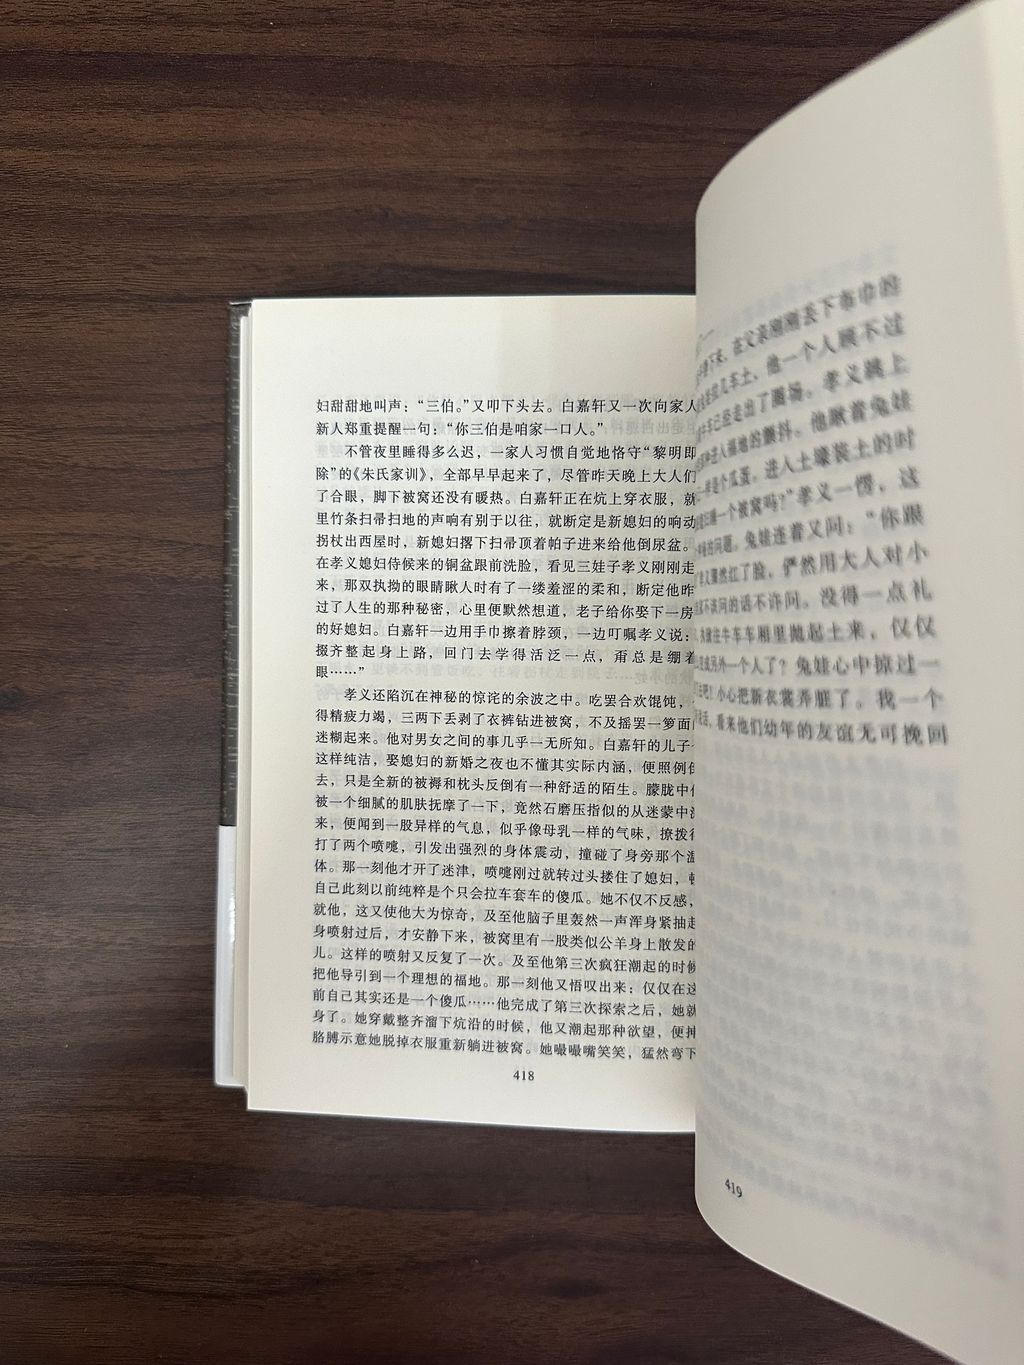 妇甜甜地叫声：“三伯。”又叩下头去。白嘉轩又一次向家人
新人郑重提醒一句：“你三伯是咱家一口人。”
不管夜里睡得多么迟，一家人习惯自觉地恪守“黎明即
除”的《朱氏家训》，全部早早起来了，尽管昨天晚上大人们
了合眼，脚下被窝还没有暖热。白嘉轩正在炕上穿衣服，就
里竹条扫帚扫地的声响有别于以往，就断定是新媳妇的响动
拐杖出西屋时，新媳妇撂下扫帚顶着帕子进来给他倒尿盆。
在孝义媳妇侍候来的铜盆跟前洗脸，看见三娃子孝义刚刚走
来，那双执拗的眼睛瞅人时有了一缕羞涩的柔和，断定他昨
过了人生的那种秘密，心里便默然想道，老子给你娶下一房
的好媳妇。白嘉轩一边用手巾擦着脖颈，一边叮嘱孝义说：
掇齐整起身上路，回门去学得活泛一点，甭总是绷着
眼……”
孝义还陷沉在神秘的惊诧的余波之中。吃罢合欢馄饨，
得精疲力竭，三两下丢剥了衣裤钻进被窝，不及摇罢一箩面
迷糊起来。他对男女之间的事几乎一无所知。白嘉轩的儿子
这样纯洁，娶媳妇的新婚之夜也不懂其实际内涵，便照例倒
去，只是全新的被褥和枕头反倒有一种舒适的陌生。朦胧中
被一个细腻的肌肤抚摩了一下，竟然石磨压指似的从迷蒙中
来，便闻到一股异样的气息，似乎像母乳一样的气味，撩拨
打了两个喷嚏，引发出强烈的身体震动，撞碰了身旁那个温
体。那一刻他才开了迷津，喷嚏刚过就转过头搂住了媳妇，
自己此刻以前纯粹是个只会拉车套车的傻瓜。她不仅不反感，
就他，这又使他大为惊奇，及至他脑子里轰然一声浑身紧抽起
身喷射过后，才安静下来，被窝里有一股类似公羊身上散发的
儿。这样的喷射又反复了一次。及至他第三次疯狂潮起的时候
把他导引到一个理想的福地。那一刻他又悟叹出来；仅仅在这
前自己其实还是一个傻瓜……他完成了第三次探索之后，她就
身了。她穿戴整齐溜下炕沿的时候，他又潮起那种欲望，便抻
胳膊示意她脱掉衣服重新躺进被窝。她嘬嘬嘴笑笑，猛然弯下
418
下来，在父亲刚刚丢下布巾的
几车土，他一个人顾不过
车已经走出了圈场。孝义跳上
进入福地的颤抖。他瞅着兔娃
一样是个瓜蛋。进入土壕装土的时
一个被窝吗？”孝义一愣，这
的问题。兔娃连着又问：“你跟
骤然红了脸，俨然用大人对小
不该问的话不许问。没得一点礼
就往牛车车厢里抛起土来，仅仅
成另外一个人了？兔娃心中掠过一
吧！小心把新衣裳弄脏了。我一个
话，看来他们幼年的友谊无可挽回
419